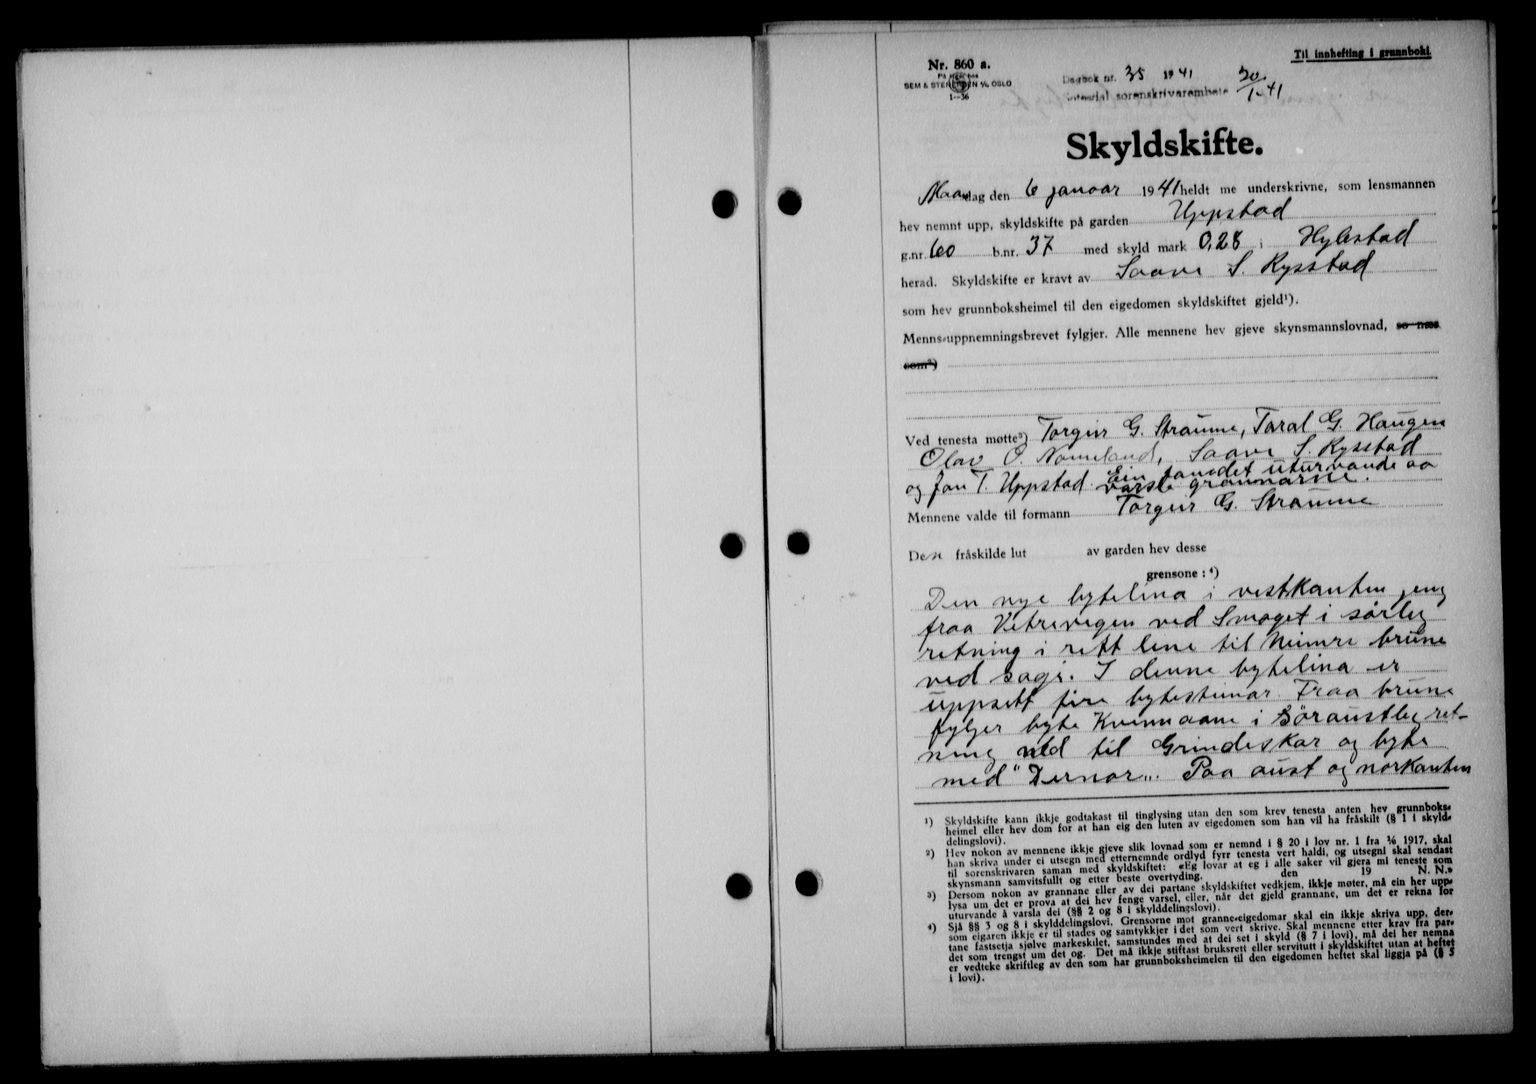 Til innhefting i grunnboki.
Nr. 860 a.
SEM & STENERSEN A/S OSLO
1-36
Dagbok nr. 35 1941 20/1-41
sorenskrivarembete
Skyldskifte.
Maandag den 6 januar 1941 heldt me underskrivne, som lensmannen
hev nemnt upp, skyldskifte på garden Uppstad
g.nr. 60 b.nr. 37 med skyld mark 0,28 i Hylestad
herad. Skyldskifte er kravt av Saave S. Rysstad
som hev grunnboksheimel til den eigedomen skyldskiftet gjeld¹).
Menns-uppnemningsbrevet fylgjer. Alle mennene hev gjeve skynsmannslovnad, so nær
som²)
Ved tenesta møtte³) Torgeir G. Straume, Taral G. Haugen
Olav O. Nomeland, Saave S. Rysstad
og Jon T. Uppstad. Ein fann det uturvande aa
varsle grannarne.
Mennene valde til formann Torgeir G. Straume
Den fråskilde lut av garden hev desse
grensone: ⁴)
Den nye bytelina i vestkanten geng
fraa Vetrevegen ved Smoget i sørleg
retning i rett line til Neimre brune
ved sagi. I denne bytelina er
uppsett fire bytesteinar. Fraa brune
fylgjer byte Kvennaane i Søraustleg ret-
ning ned til Grindeskar og byte
med "Dernor". Paa aust og norkanten
¹) Skyldskifte kann ikkje godtakast til tinglysing utan den som krev tenesta anten hev grunnboks-
heimel eller hev dom for at han eig den luten av eigedomen som han vil ha fråskilt (§ 1 i skyld-
delingslovi).
²) Hev nokon av mennene ikkje gjeve slik lovnad som er nemnd i § 20 i lov nr. 1 fra 1/6 1917, skal
han skriva under ei utsegn med etternemnde ordlyd fyrr tenesta vert haldi, og utsegni skal sendast
til sorenskrivaren saman med skyldskiftet: «Eg lovar at eg i alle saker vil gjera mi teneste som
skynsmann samvitsfullt og etter beste overtyding. den 19 N. N.»
³) Dersom nokon av grannane eller av dei partane skyldskiftet vedkjem, ikkje møter, må ein her upp-
lysa um det er prova at dei hev fenge varsel, eller, når det gjeld grannane, um det er rekna for
uturvande å varsla dei (§§ 2 og 8 i skylddelingslovi).
⁴) Sjå §§ 3 og 8 i skylddelingslovi. Grensorne mot granne-eigedomar skal ein ikkje skriva upp, der-
som eigaren ikkje er til stades og samtykkjer i det som vert skrive. Skal mennene etter krav fra par-
tane fastsetja sjølve markeskilet, samstundes med at dei set i skyld (§ 7 i lovi), må dei her nemna
det som trengst um det og. Det må ikkje stiftast bruksrett eller servitutt i skyldskiftet utan at heftet
er vedteke skriftleg av den som har grunnboksheimelen til den eigedomen heftet skal liggja på (§ 5
i lovi).